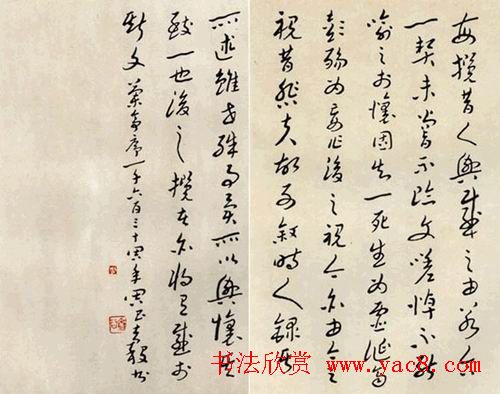 每攬昔人興感之由若合
一契未嘗不臨文嗟悼不能
喻之於懷固知一死生為虛誕齊
彭殤為妄作後之視今亦由今之
視昔悲夫故列敘時人錄其
所述雖世殊事異所以興懷其
致一也後之攬者亦將有感於
斯文 蘭亭序一千六百三十周年
书法欣赏 www.yac8.com